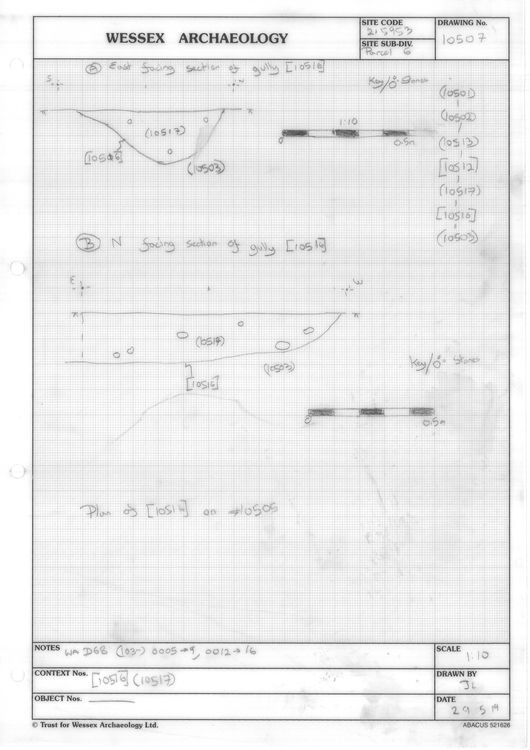 WESSEX ARCHAEOLOGY
SITE CODE
215953
SITE SUB-DIV.
Parcel 6
DRAWING No.
10507
A East facing section of gully [10516]
S
N
Key/ Stones
(10517)
[10516]
(10503)
1:10
0
0.5m
(10501)
(10502)
(10513)
[10512]
(10517)
[10516]
(10503)
B N facing section of gully [10516]
E
W
(10517)
(10503)
[10516]
Key/ Stones
0
0.5m
Plan of [10516] on 10505
NOTES WA DGB (103-) 0005→9, 0012→16
SCALE
1:10
CONTEXT Nos. [10516] (10517)
DRAWN BY
JL
OBJECT Nos.
DATE
29 5 19
© Trust for Wessex Archaeology Ltd.
ABACUS 521626